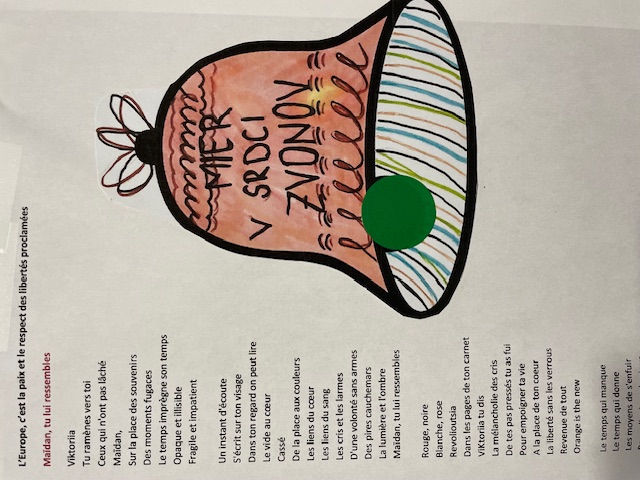 L'Europe, c'est la paix et le respect des libertés proclamées
Maidan, tu lui ressembles
Viktoriia
Tu ramènes vers toi
Ceux qui n'ont pas lâché
Maidan,
Sur la place des souvenirs
Des moments fugaces
Le temps imprègne son temps
Opaque et illisible
Fragile et impatient
Un instant d'écoute
S'écrit sur ton visage
Dans ton regard on peut lire
Le vide au cœur
Cassé
De la place aux couleurs
Les liens du cœur
Les liens du sang
Les cris et les larmes
D'une volonté sans armes
Des pires cauchemars
La lumière et l'ombre
Maidan, tu lui ressembles
Rouge, noire
Blanche, rose
Revolioutsia
Dans les pages de ton carnet
Viktoriia tu dis
La mélancholie des cris
De tes pas pressés tu as fui
Pour empoigner ta vie
A la place de ton coeur
La liberté sans les verrous
Revenue de tout
Orange is the new
Le temps qui manque
Le temps qui donne
Les moyens de s'enfuir
MIER
V SRDCI
ZVONOV